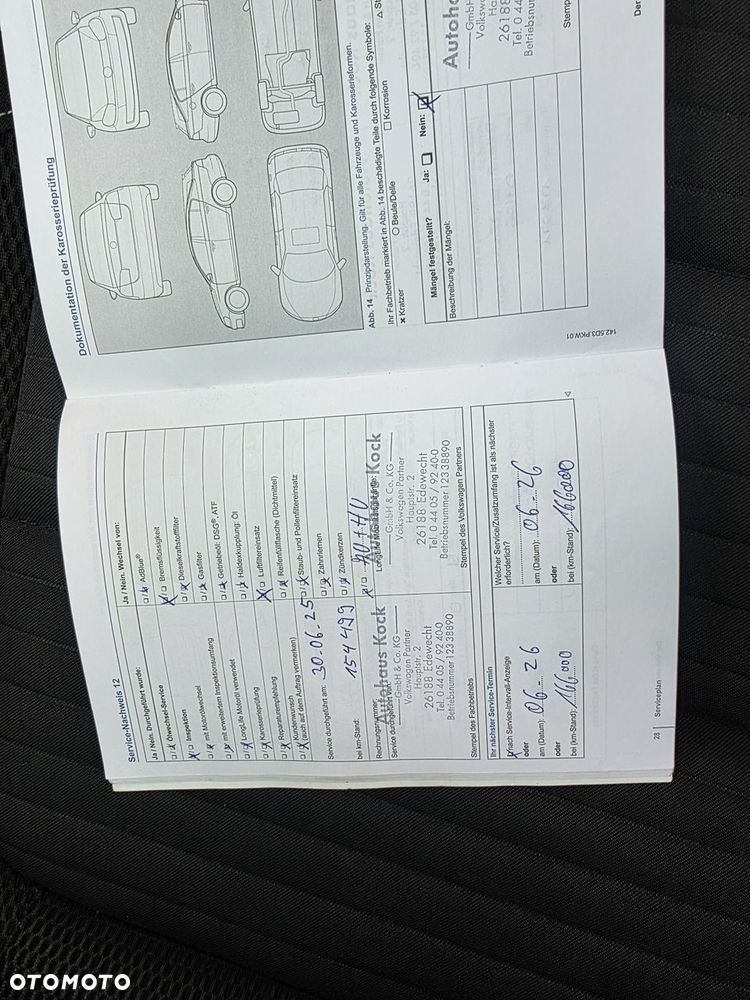 Service-Nachweis 12
Ja / Nein. Durchgeführt wurde:
Ölwechsel-Service
Inspektion
mit Motorölwechsel
mit erweitertem Inspektionsumfang
LongLife Motoröl verwendet
Karosserieprüfung
Reparaturempfehlung
Kundenwunsch
(auch auf dem Auftrag vermerken)
Service durchgeführt am: 30.06.25
bei km-Stand: 154 499
Rechnungsnummer:
Service durchgeführt von:
Autohaus Kock
GmbH & Co. KG
Volkswagen Partner
Hauptstr. 2
26188 Edewecht
Tel. 0 44 05 / 92 40-0
Betriebsnummer 12338890
Stempel des Fachbetriebs
Ja / Nein. Wechsel von:
AdBlue®
Bremsflüssigkeit
Dieselkraftstofffilter
Gasfilter
Getriebeöl: DSG®, ATF
Haldexkupplung: Öl
Luftfiltereinsatz
Reifenfüllflasche (Dichtmittel)
Staub- und Pollenfiltereinsatz
Zahnriemen
Zündkerzen
Autohaus Kock
GmbH & Co. KG
Volkswagen Partner
Hauptstr. 2
26188 Edewecht
Tel. 0 44 05 / 92 40-0
Betriebsnummer 12338890
Stempel des Volkswagen Partners
Ihr nächster Service-Termin
nach Service-Intervall-Anzeige
oder
am (Datum): 06.26
oder
bei (km-Stand): 166 000
Welcher Service/Zusatzumfang ist als nächster
erforderlich?
am (Datum): 06.26
oder
bei (km-Stand): 166000
28 | Serviceplan
Dokumentation der Karosserieprüfung
Abb. 14 Prinzipdarstellung. Gilt für alle Fahrzeuge und Karosserieformen.
Ihr Fachbetrieb markiert in Abb. 14 beschädigte Teile durch folgende Symbole:
x Kratzer
O Beule/Delle
□ Korrosion
Mängel festgestellt? Ja: Nein:
Beschreibung der Mängel:
Autoha
GmbH
Volkswa
Ha
26188
Tel. 0 44
Betriebsnum
Stemp
142.5D3.PKW.01
OTOMOTO